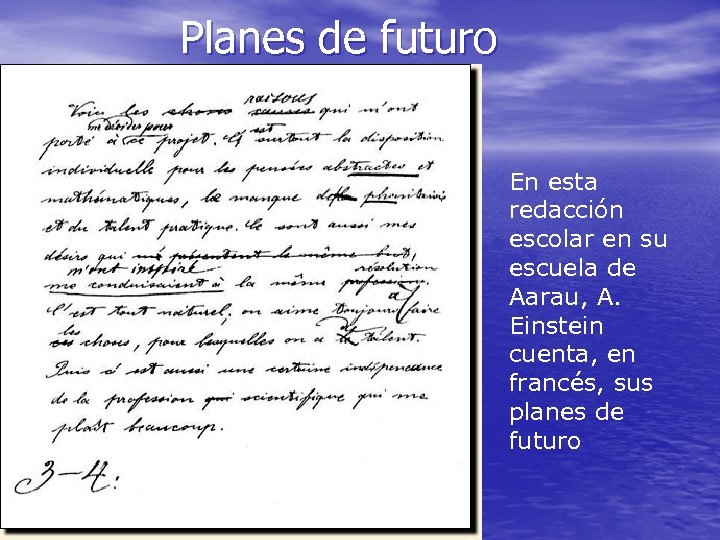 Planes de futuro
raisons
Voici les choses causes qui m'ont
me décider pour est
porté à ce projet. C'est surtout la disposition
individuelle pour les pensées abstractes et
mathématiques, le manque de la phantaisie
et du talent pratique. Ce sont aussi mes
désirs qui me présentent le même but,
m'ont inspiré résolution
me conduisaient à la même profession.
C'est tout naturel; on aime toujours à faire
les choses, pour lesquelles on a du talent.
Puis c'est aussi une certaine indépendance
de la profession qui scientifique qui me
plaît beaucoup.
3-4.
En esta
redacción
escolar en su
escuela de
Aarau, A.
Einstein
cuenta, en
francés, sus
planes de
futuro